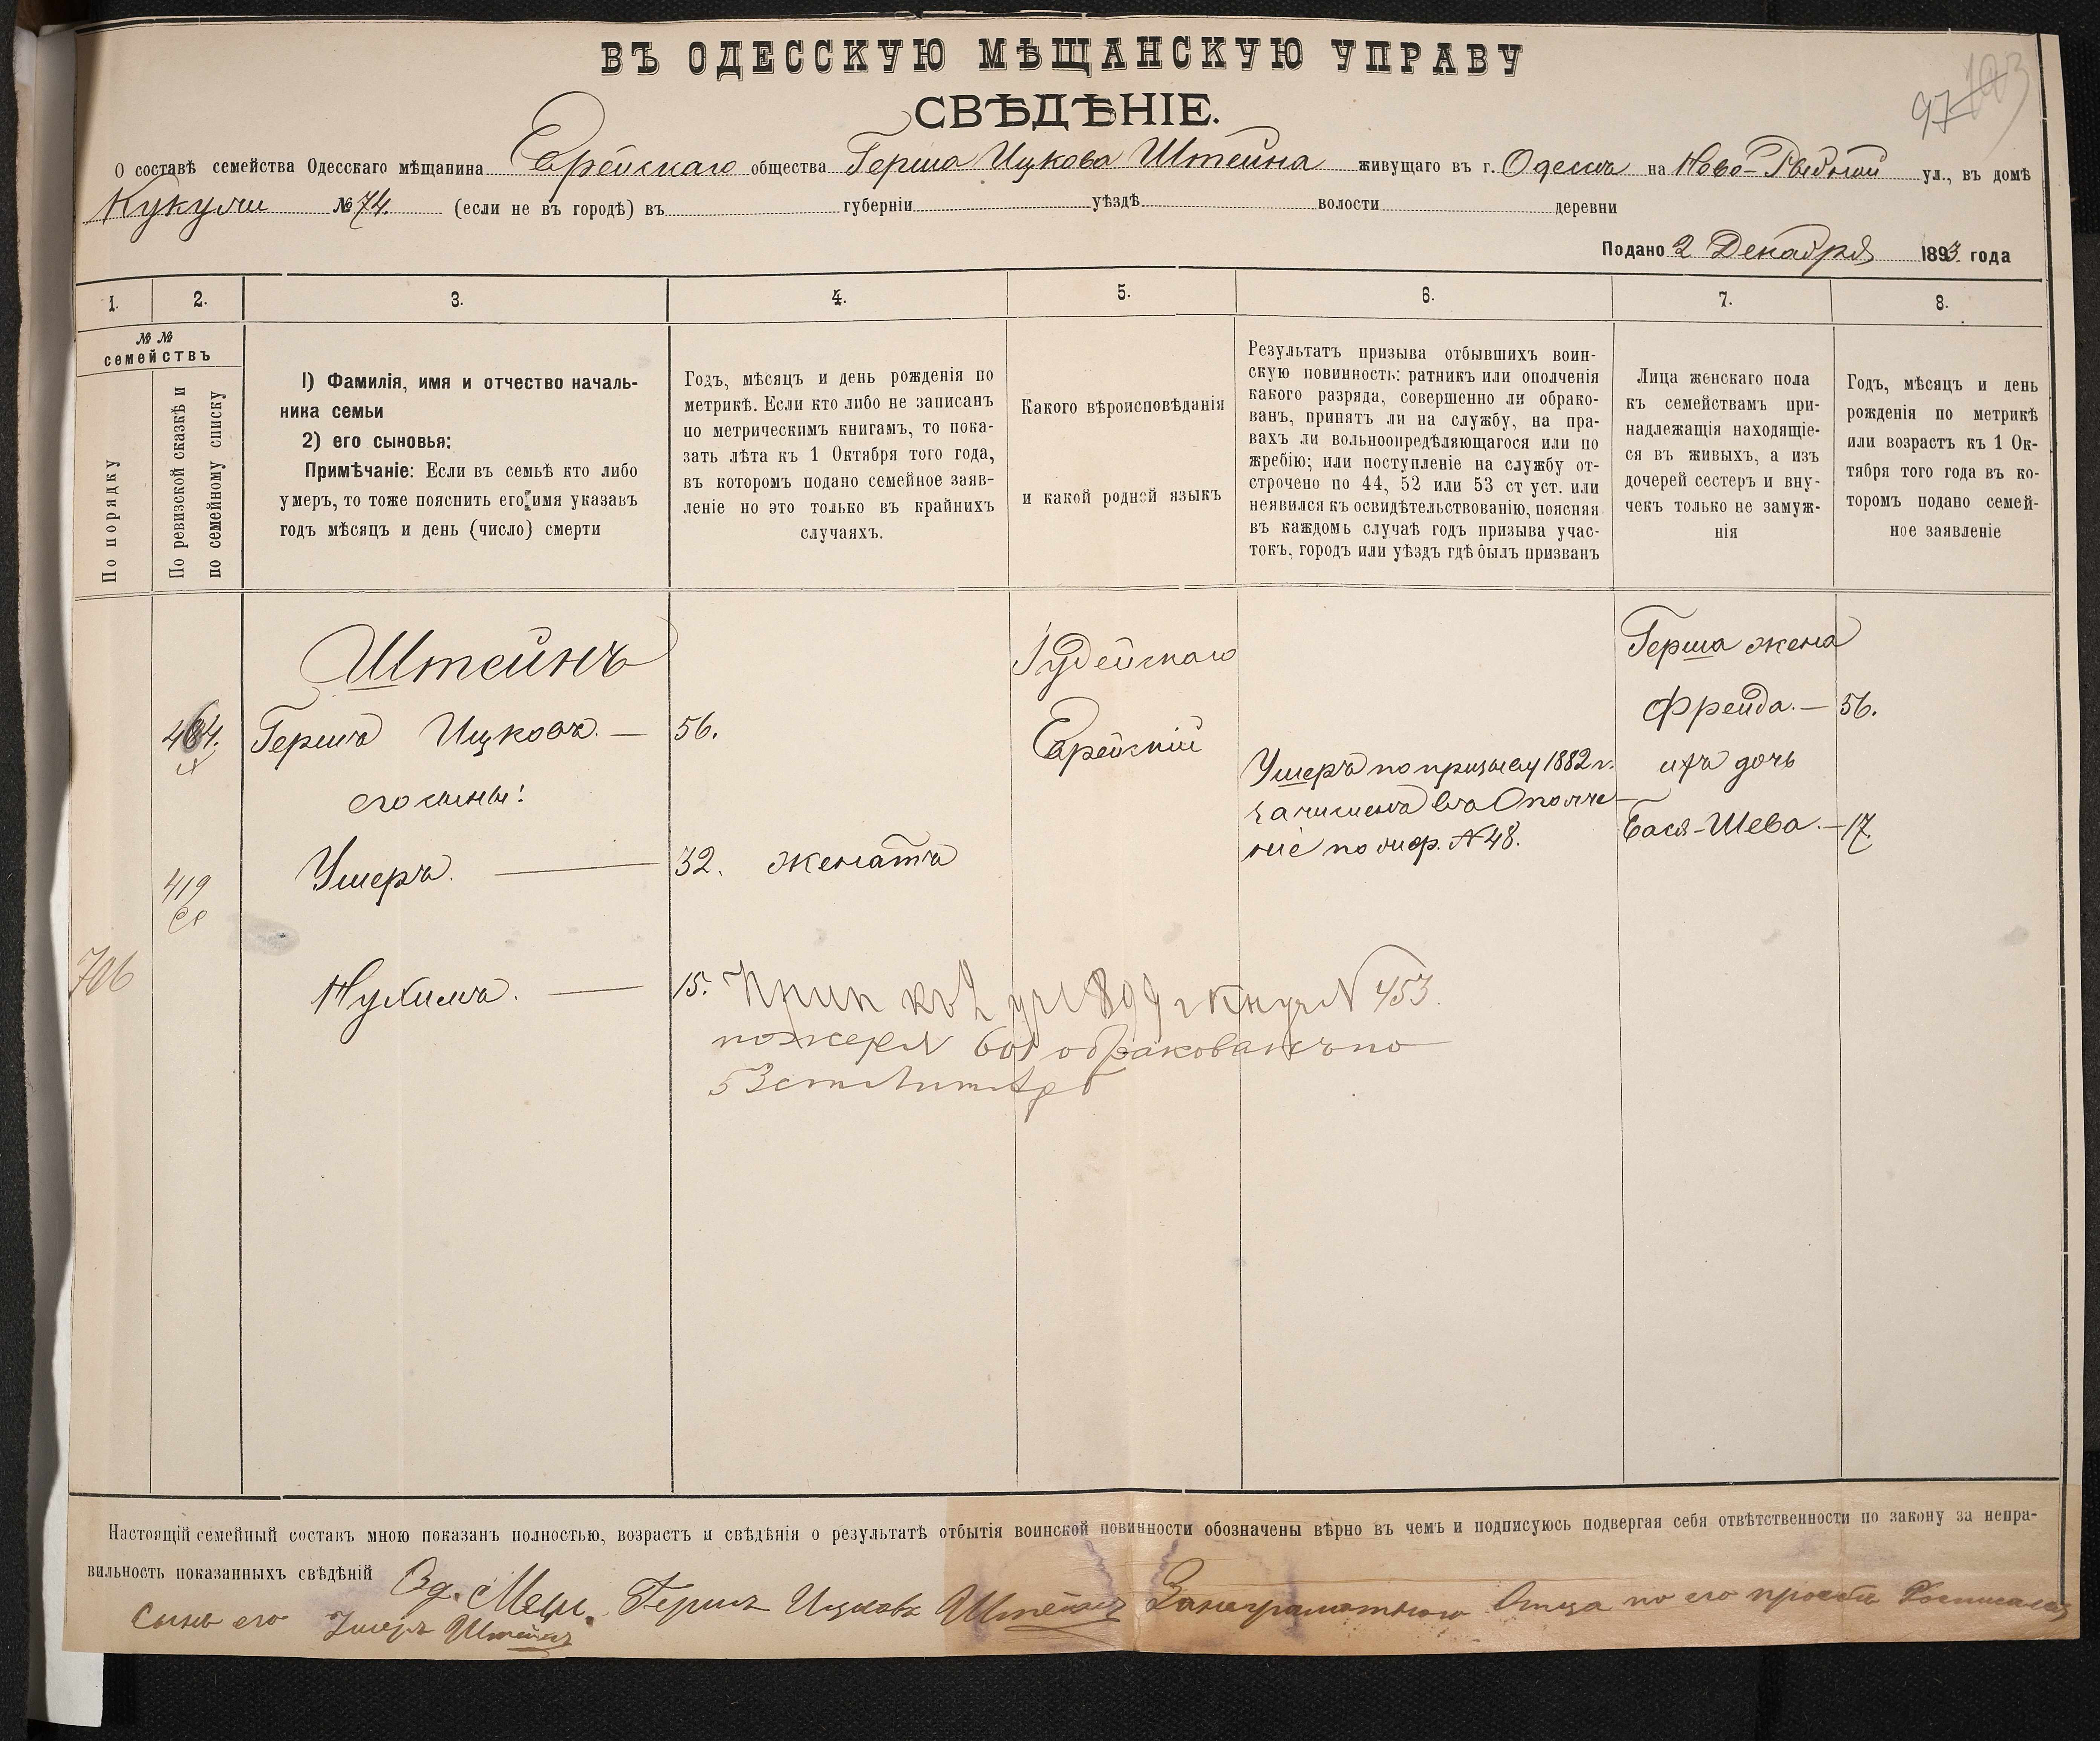 ВЪ ОДЕССКУЮ МѢЩАНСКУЮ УПРАВУ
СВѢДѢНІЕ.
97 103
О составѣ семейства Одесскаго мѣщанина Еврейскаго общества Герша Ицкова Штейна живущаго въ г. Одессѣ на Ново-Рыбной ул., въ домѣ
Кукули № 74. (если не въ городѣ) въ губерніи уѣздѣ волости деревни
Подано 2 Декабря 1893 года
1. 2. 3. 4. 5. 6. 7. 8.
№ №
семействъ
По порядку
По ревизской сказкѣ и
по семейному списку
1) Фамилія, имя и отчество началь-
ника семьи
2) его сыновья:
Примѣчаніе: Если въ семьѣ кто либо
умеръ, то тоже пояснить его имя указавъ
годъ мѣсяцъ и день (число) смерти
Годъ, мѣсяцъ и день рожденія по
метрикѣ. Если кто либо не записанъ
по метрическимъ книгамъ, то пока-
зать лѣта къ 1 Октября того года,
въ которомъ подано семейное заяв-
леніе но это только въ крайнихъ
случаяхъ.
Какого вѣроисповѣданія
и какой родной языкъ
Результатъ призыва отбывшихъ воин-
скую повинность: ратникъ или ополченія
какого разряда, совершенно ли обрако-
ванъ, принятъ ли на службу, на пра-
вахъ ли вольноопредѣляющагося или по
жребію; или поступленіе на службу от-
строчено по 44, 52 или 53 ст уст. или
неявился къ освидѣтельствованію, поясняя
въ каждомъ случаѣ годъ призыва учас-
токъ, городъ или уѣздъ гдѣ былъ призванъ
Лица женскаго пола
къ семействамъ при-
надлежащія находящіе-
ся въ живыхъ, а изъ
дочерей сестеръ и вну-
чекъ только не замуж-
нія
Годъ, мѣсяцъ и день
рожденія по метрикѣ
или возрастъ къ 1 Ок-
тября того года въ ко-
торомъ подано семей-
ное заявленіе
Штейнъ
Іудейскаго
Герша жена
Гершъ Ицковъ. — 56.
Еврейскій
Фрейда. — 56.
его сыны:
Ушеръ по призыву 1882 г.
зачисленъ въ Ополче-
ніе по жер. № 48.
ихъ дочь
Бася-Шева. — 17.
419
Ушеръ. — 32. женатъ
706
Нухимъ. — 15. Приз къ 2 уч 1899 г № 453.
по жереб 601 обракованъ по
53 ст
Настоящій семейный составъ мною показанъ полностью, возрастъ и свѣдѣнія о результатѣ отбытія воинской повинности обозначены вѣрно въ чемъ и подписуюсь подвергая себя отвѣтственности по закону за непра-
вильность показанныхъ свѣдѣній Од. Мещ. Гершъ Ицковъ Штейнъ Занеграмотного Отца по его просьбе Росписался
Сынъ его Ушеръ Штейнъ